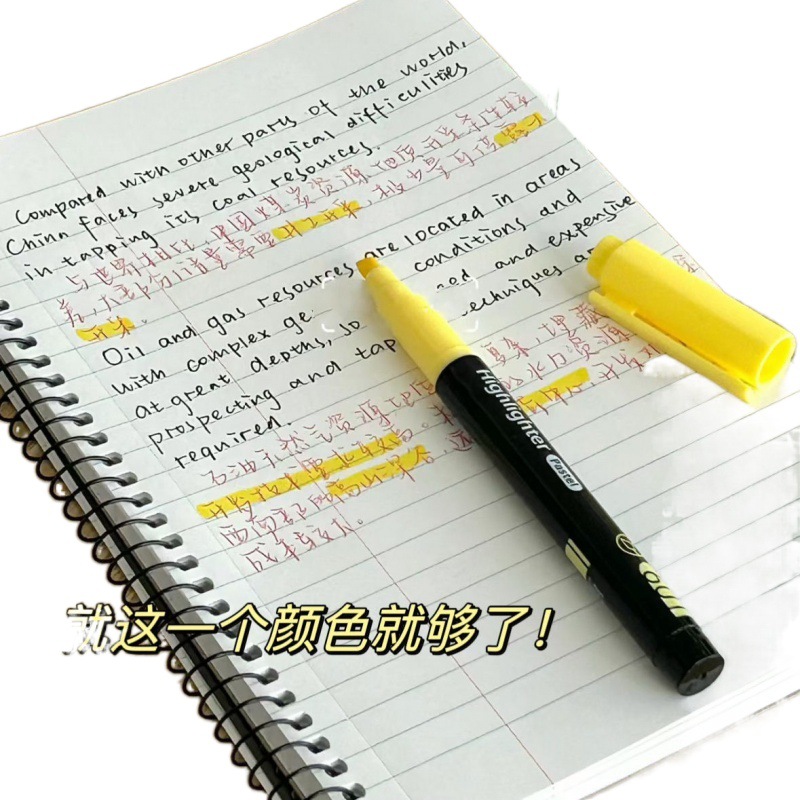 Compared with other parts of the world,
China faces severe geological difficulties
in tapping its coal resources.
与世界相比,中国煤炭资源地质开采条件较
差,大部分储量需要井工开采,极少量可供露天
开采。
Oil and gas resources are located in areas
with complex ge conditions and
at great depths, so and expensive
prospecting and tap techniques are
required.
石油天然气资源地质 复杂,埋藏
开发技术要求较高。 水力资源
西南部的高山深谷,远
成本较大。
Highlighter Pastel
就这一个颜色就够了!